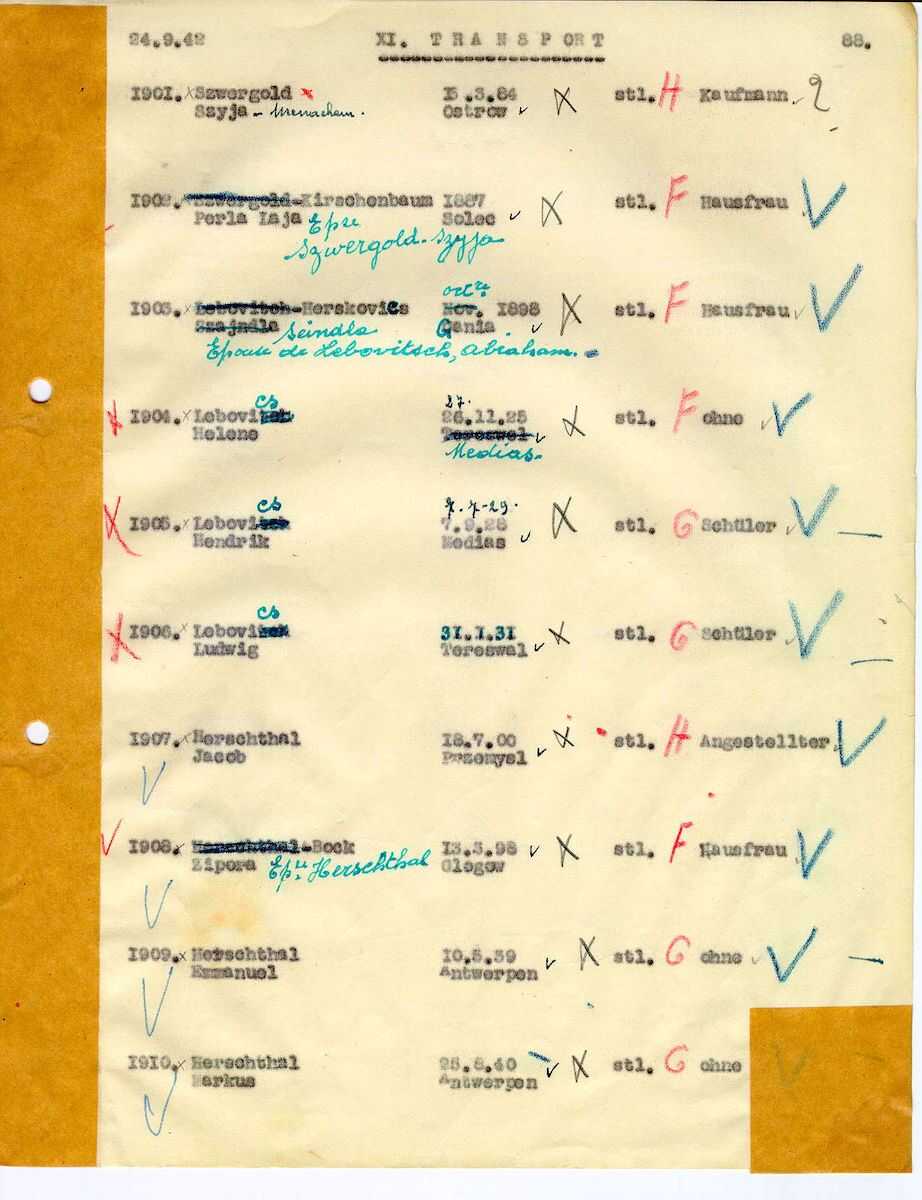 24.9.42 XI. TRANSPORT 88.
1901. Szwergold 15.3.84 stl. H Kaufmann
Szyja - Menachem. Ostrow
1902. Szwergold-Kirschenbaum 1887 stl. F Hausfrau
Perla Laja Solec
Epse
Szwergold-Szyja
octre
1903. Lebovitsch-Herskovics Nov. 1898 stl. F Hausfrau
Szajndla Seindla Gania
Epouse de Lebovitsch, Abraham.
cs 27.
1904. Lebovitsch 26.11.25 stl. F ohne
Helene Tereswel
Medias.
cs 7.7-29.
1905. Lebovitsch 7.9.28 stl. G Schüler
Hendrik Medias
cs
1906. Lebovitsch 31.1.31 stl. G Schüler
Ludwig Tereswal
1907. Herschthal 18.7.00 stl. H Angestellter
Jacob Przemysl
1908. Herschthal-Bock 13.3.98 stl. F Hausfrau
Zipora Epse Herschthal Glogow
1909. Herschthal 10.5.39 stl. G ohne
Emmanuel Antwerpen
1910. Herschthal 25.8.40 stl. G ohne
Markus Antwerpen